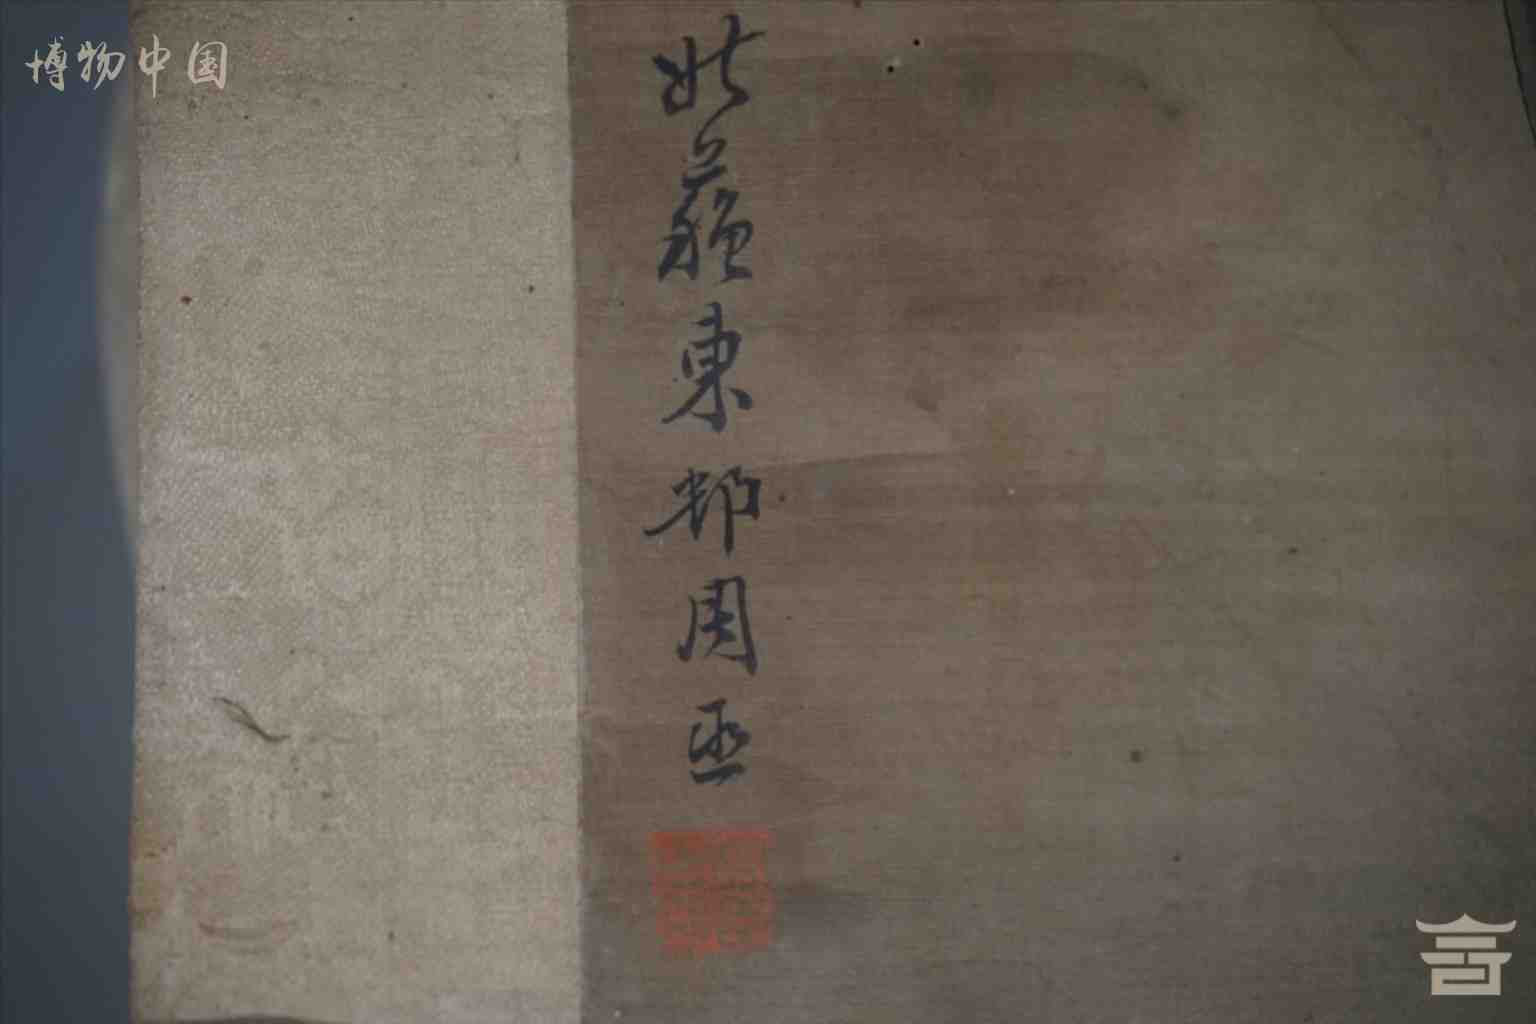 博物中国
姑蘇東邨周臣